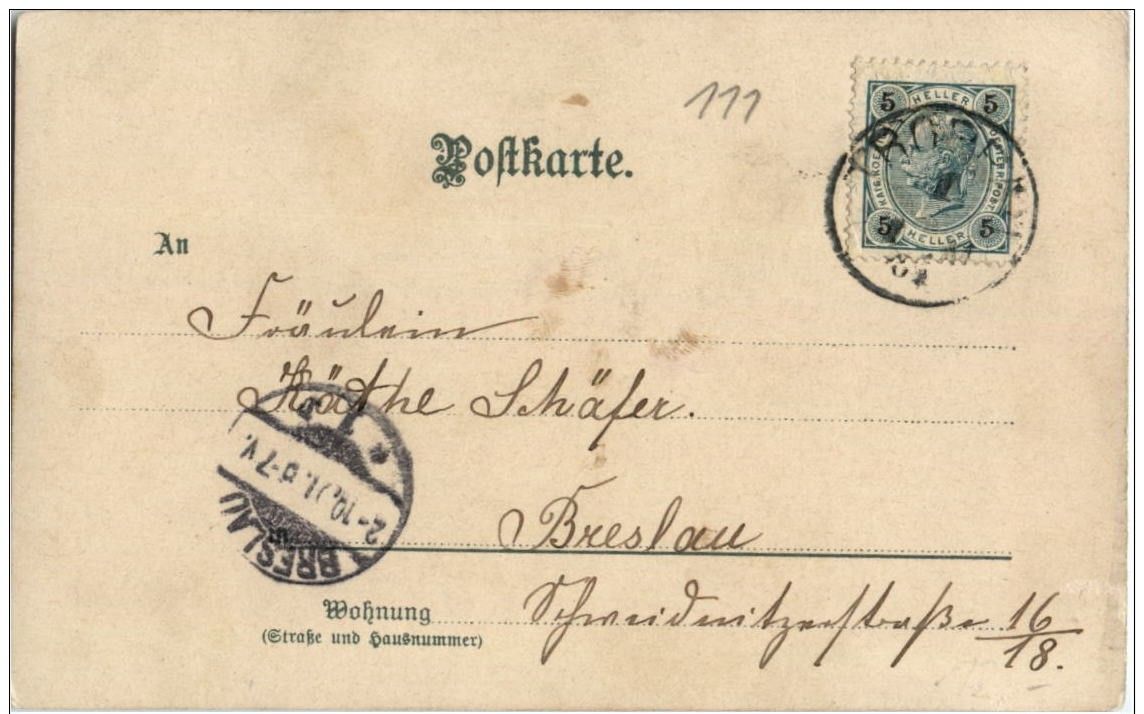 111
Postkarte.
5 HELLER 5
5 HELLER 5
An
Fräulein
Käthe Schäfer.
BRESLAU
Breslau
Wohnung
(Straße und Hausnummer)
Schweidnitzerstraße 16/18.